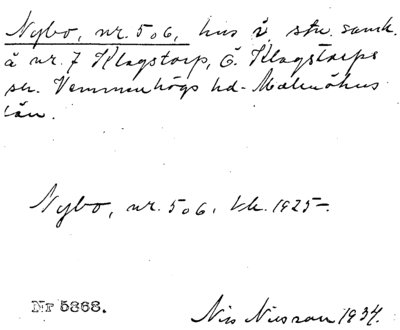 Nybo, nr. 5 o 6, hus i stn. samh.
å nr. 7 Klagstorp, Ö. Klagstorps
sn. Vemmenhögs hd. Malmöhus
län.
Nybo, nr. 5 o 6, tk. 1925-.
Nr 5868.
Nils Nilsson 1934.